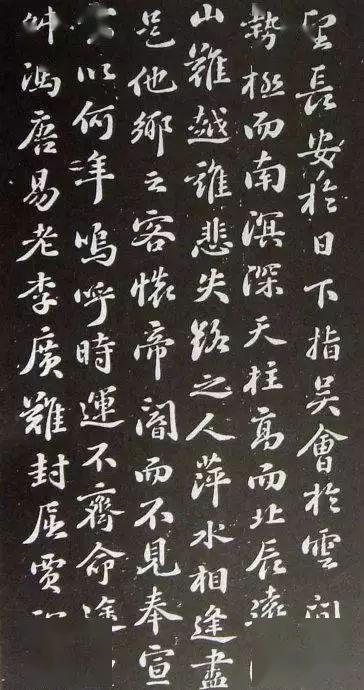 望長安於日下指吳會於雲間
勢極而南溟深天柱高而北辰遠
山難越誰悲失路之人萍水相逢盡
是他鄉之客懷帝閽而不見奉宣
以何年嗚呼時運不齊命途
舛馮唐易老李廣難封屈賈